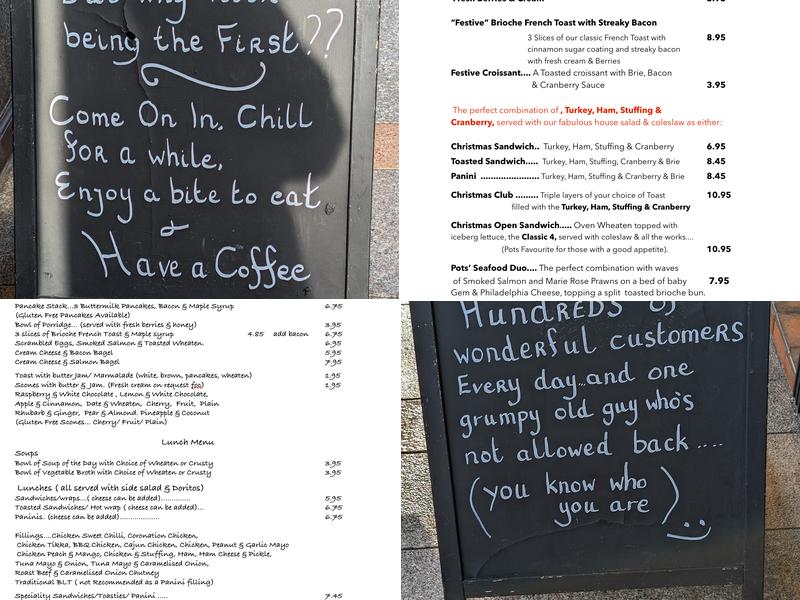 being the First??
Come On In, Chill
for a while,
Enjoy a bite to eat
&
Have a Coffee
"Festive" Brioche French Toast with Streaky Bacon
3 Slices of our classic French Toast with 8.95
cinnamon sugar coating and streaky bacon
with fresh cream & Berries
Festive Croissant.... A Toasted croissant with Brie, Bacon
& Cranberry Sauce 3.95
The perfect combination of , Turkey, Ham, Stuffing &
Cranberry, served with our fabulous house salad & coleslaw as either:
Christmas Sandwich.. Turkey, Ham, Stuffing & Cranberry 6.95
Toasted Sandwich..... Turkey, Ham, Stuffing, Cranberry & Brie 8.45
Panini ....................... Turkey, Ham, Stuffing, Cranberry & Brie 8.45
Christmas Club ......... Triple layers of your choice of Toast 10.95
filled with the Turkey, Ham, Stuffing & Cranberry
Christmas Open Sandwich..... Oven Wheaten topped with
iceberg lettuce, the Classic 4, served with coleslaw & all the works....
(Pots Favourite for those with a good appetite). 10.95
Pots' Seafood Duo.... The perfect combination with waves
of Smoked Salmon and Marie Rose Prawns on a bed of baby 7.95
Gem & Philadelphia Cheese, topping a split toasted brioche bun.
Pancake Stack...3 Buttermilk Pancakes, Bacon & Maple Syrup 6.75
(Gluten Free Pancakes Available)
Bowl of Porridge... (served with fresh berries & honey) 3.95
3 slices of Brioche French Toast & Maple syrup 4.85 add bacon 6.75
Scrambled Eggs, Smoked Salmon & Toasted Wheaten. 6.95
Cream Cheese & Bacon Bagel 5.95
Cream Cheese & Salmon Bagel 7.95
Toast with butter Jam/ Marmalade (white, brown, pancakes, wheaten) 1.95
Scones with butter & Jam. (Fresh cream on request foc) 1.95
Raspberry & White Chocolate , Lemon & White Chocolate,
Apple & Cinnamon, Date & Wheaten, Cherry, Fruit, Plain
Rhubarb & Ginger, Pear & Almond. Pineapple & Coconut
(Gluten Free Scones... Cherry/ Fruit/ Plain)
Lunch Menu
Soups
Bowl of Soup of the Day with Choice of Wheaten or Crusty 3.95
Bowl of Vegetable Broth with Choice of Wheaten or Crusty 3.95
Lunches ( all served with side salad & Doritos)
Sandwiches/wraps...( cheese can be added).............. 5.95
Toasted Sandwiches/ Hot wrap ( cheese can be added)... 6.75
Paninis. (cheese can be added).................... 6.75
Fillings....Chicken Sweet Chilli, Coronation Chicken,
Chicken Tikka, BBQ Chicken, Cajun Chicken, Chicken, Peanut & Garlic Mayo
Chicken Peach & Mango, Chicken & Stuffing, Ham, Ham Cheese & Pickle,
Tuna Mayo & Onion, Tuna Mayo & Caramelised Onion,
Roast Beef & Caramelised Onion Chutney
Traditional BLT ( not Recommended as a Panini filling)
Speciality Sandwiches/Toasties/ Panini ..... 7.45
HUNDREDS OF
wonderful customers
Every day...and one
grumpy old guy who's
not allowed back ....
(you know who
you are)